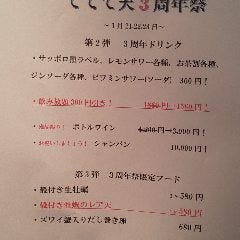 ててて天3周年祭
~1月21.22.23日~
第2弾 3周年ドリンク
・サッポロ黒ラベル、レモンサワー各種、お茶割各種、
ジンソーダ各種、ビフィズスサワー(ソーダ) 300円!
・飲み放題300円引き!
・ボトルワイン → 3.000円!
シャンパン 10.000円!
第3弾 3周年祭限定フード
・殻付き生牡蠣 580円
・殻付き牡蠣のレア天
・ズワイ蟹入りだし巻き卵 680円